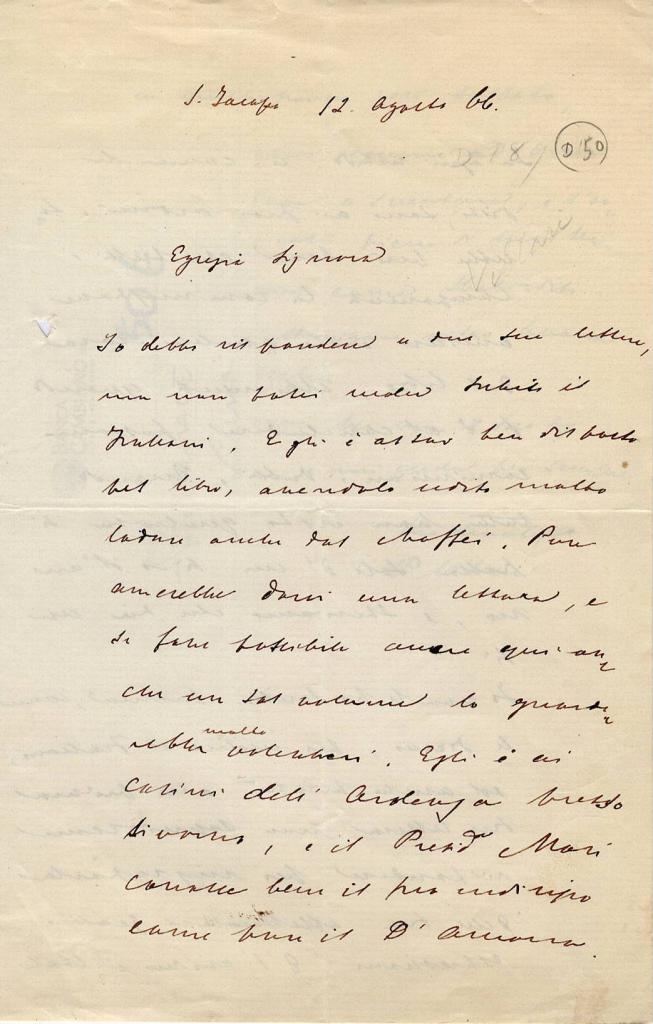 S. Jacopo 12. Agosto 66.
D 50
Egregia Signora
Io debbo rispondere a due sue lettere,
ma non potei veder subito il
Trubani. Egli è assai ben disposto
pel libro, avendolo udito molto
lodare anche dal Maffei. Pure
amerebbe darvi una lettura, e
se fosse possibile avere qui an-
che un sol volume lo guarde-
rebbe molto volentieri. Egli è ai
Casini dell'Ardenza presso
Livorno, e il Presid.e Mari
conosce bene il suo indirizzo
come pure il D'Ancona.